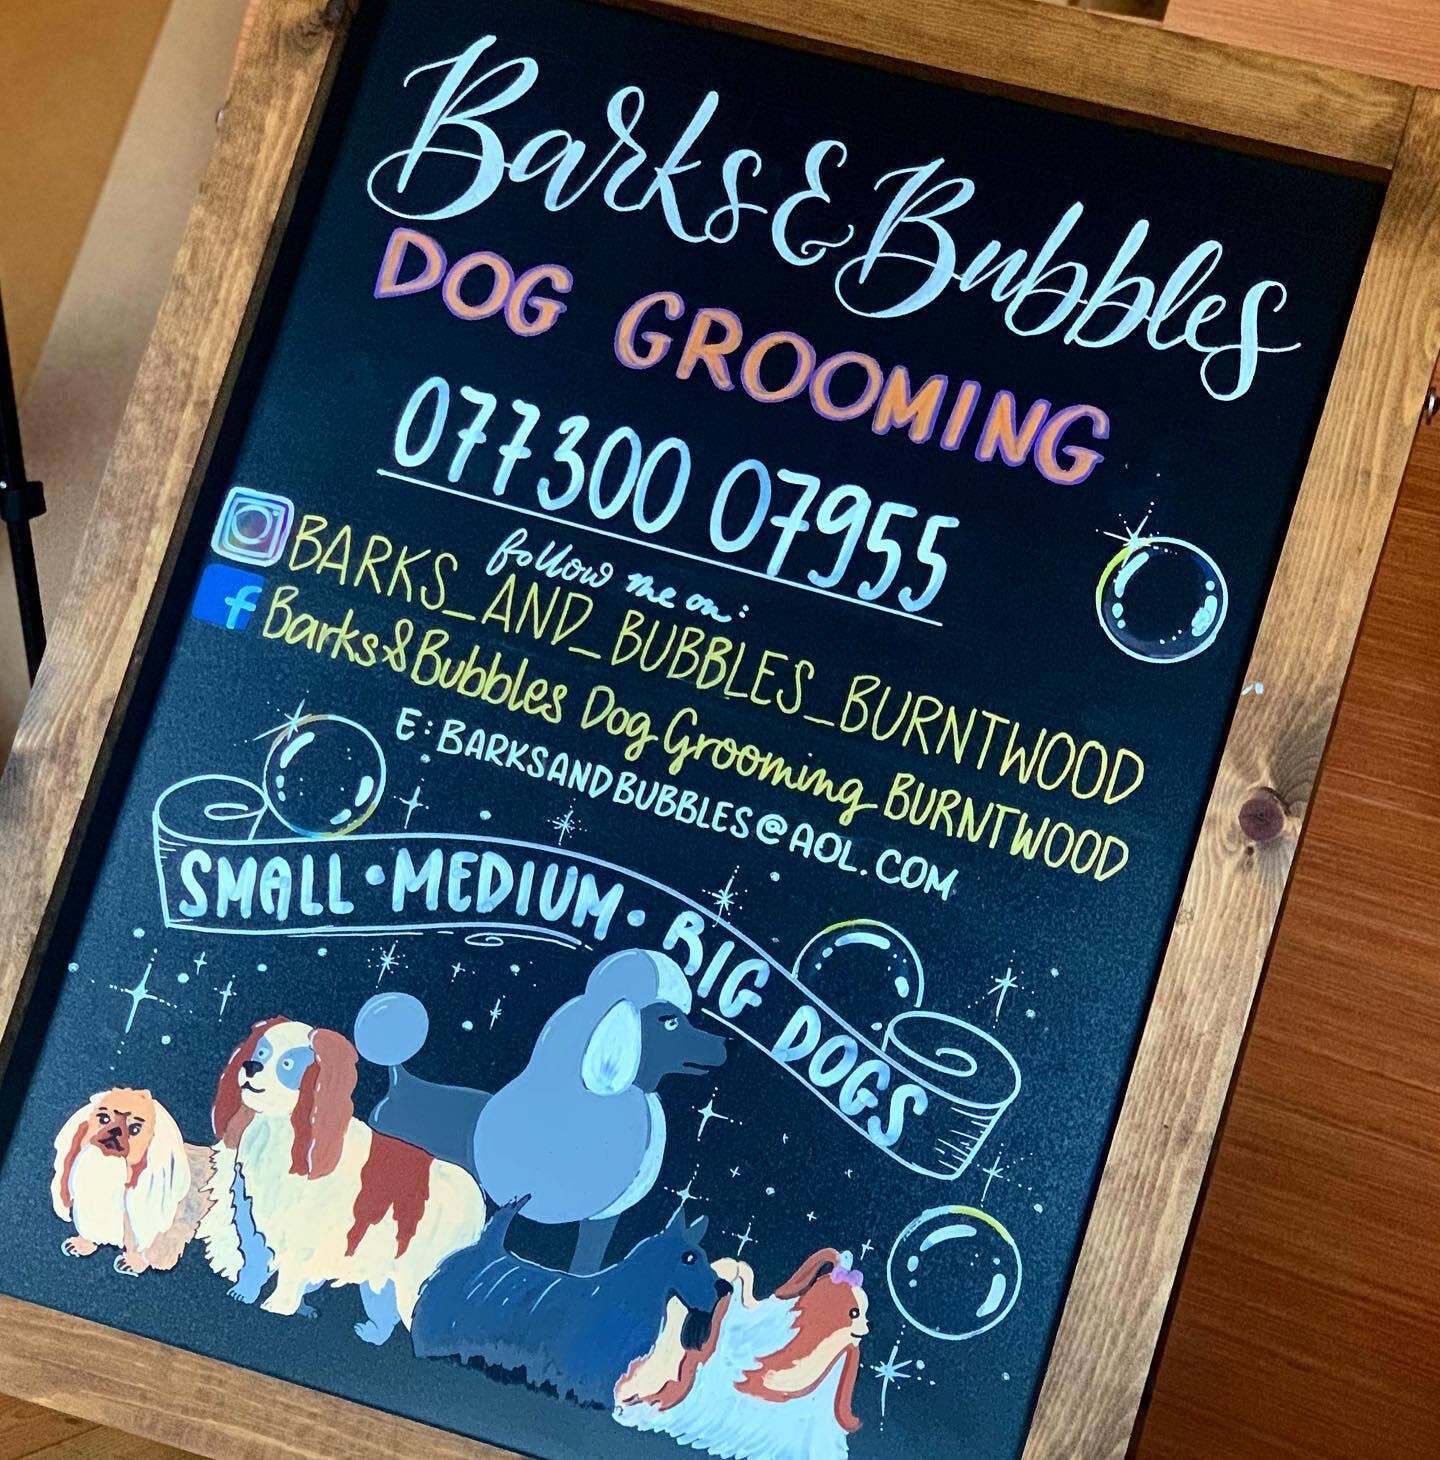 Barks & Bubbles
DOG GROOMING
077300 07955
follow me on:
BARKS_AND_BUBBLES_BURNTWOOD
f Barks & Bubbles Dog Grooming BURNTWOOD
E: BARKSANDBUBBLES@AOL.COM
SMALL • MEDIUM • BIG DOGS